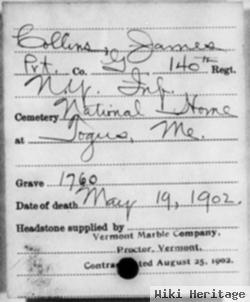 Collins, James
Pvt. Co. G, 140th Regt.
N.Y. Inf.
Cemetery National Home
at Togus, Me.
Grave 1760
Date of death May 19, 1902.
Headstone supplied by
Vermont Marble Company,
Proctor, Vermont.
Contract dated August 25, 1902.
Wiki Heritage